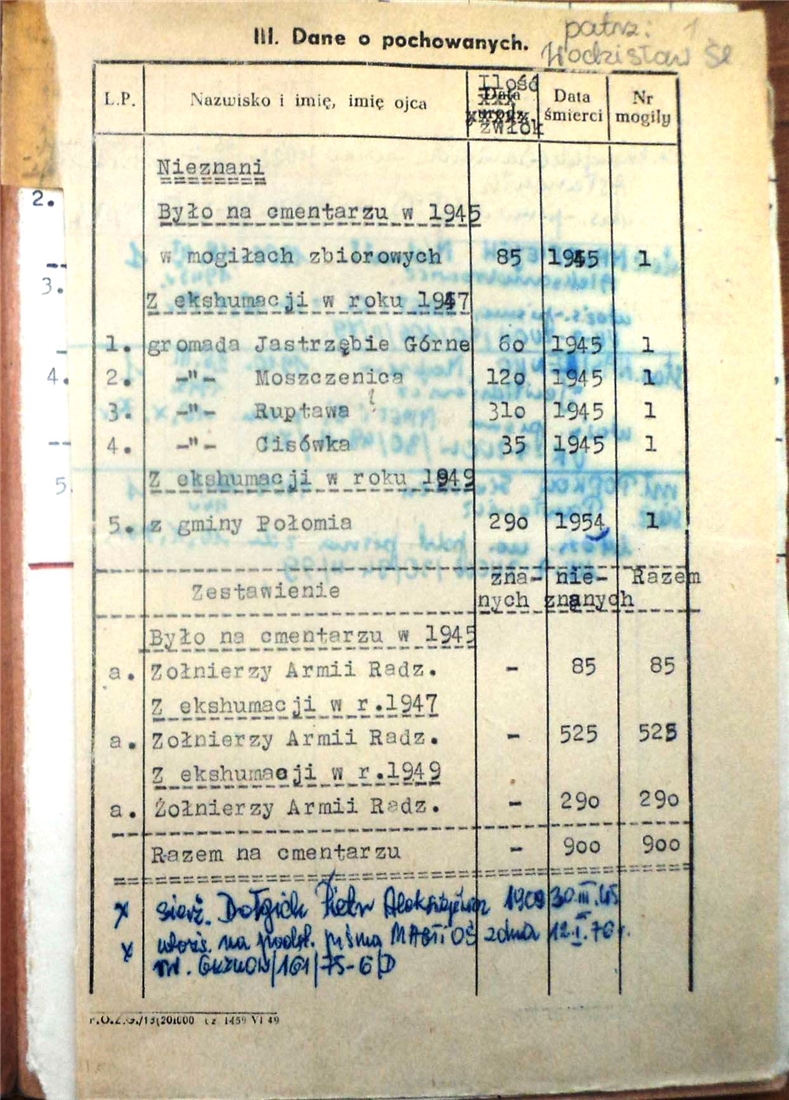 III. Dane o pochowanych.
patrz: 1
Wodzisław Śl
L.P. Nazwisko i imię, imię ojca Ilość zwłok Data śmierci Nr mogiły
Nieznani
Było na cmentarzu w 1945
w mogiłach zbiorowych 85 1945 1
Z ekshumacji w roku 1947
1. gromada Jastrzębie Górne 60 1945 1
2. -"- Moszczenica 120 1945 1
3. -"- Ruptawa 310 1945 1
4. -"- Cisówka 35 1945 1
Z ekshumacji w roku 1949
5. z gminy Połomia 290 1954 1
Zestawienie znanych nieznanych Razem
Było na cmentarzu w 1945
a. Żołnierzy Armii Radz. - 85 85
Z ekshumacji w r.1947
a. Żołnierzy Armii Radz. - 525 525
Z ekshumacji w r.1949
a. Żołnierzy Armii Radz. - 290 290
Razem na cmentarzu - 900 900
x sierż. Dołgich Piotr 1909 30.III.45
x na podst. pisma MAGTiOŚ z dnia 12.I.76 r.
2.
3.
4.
5.